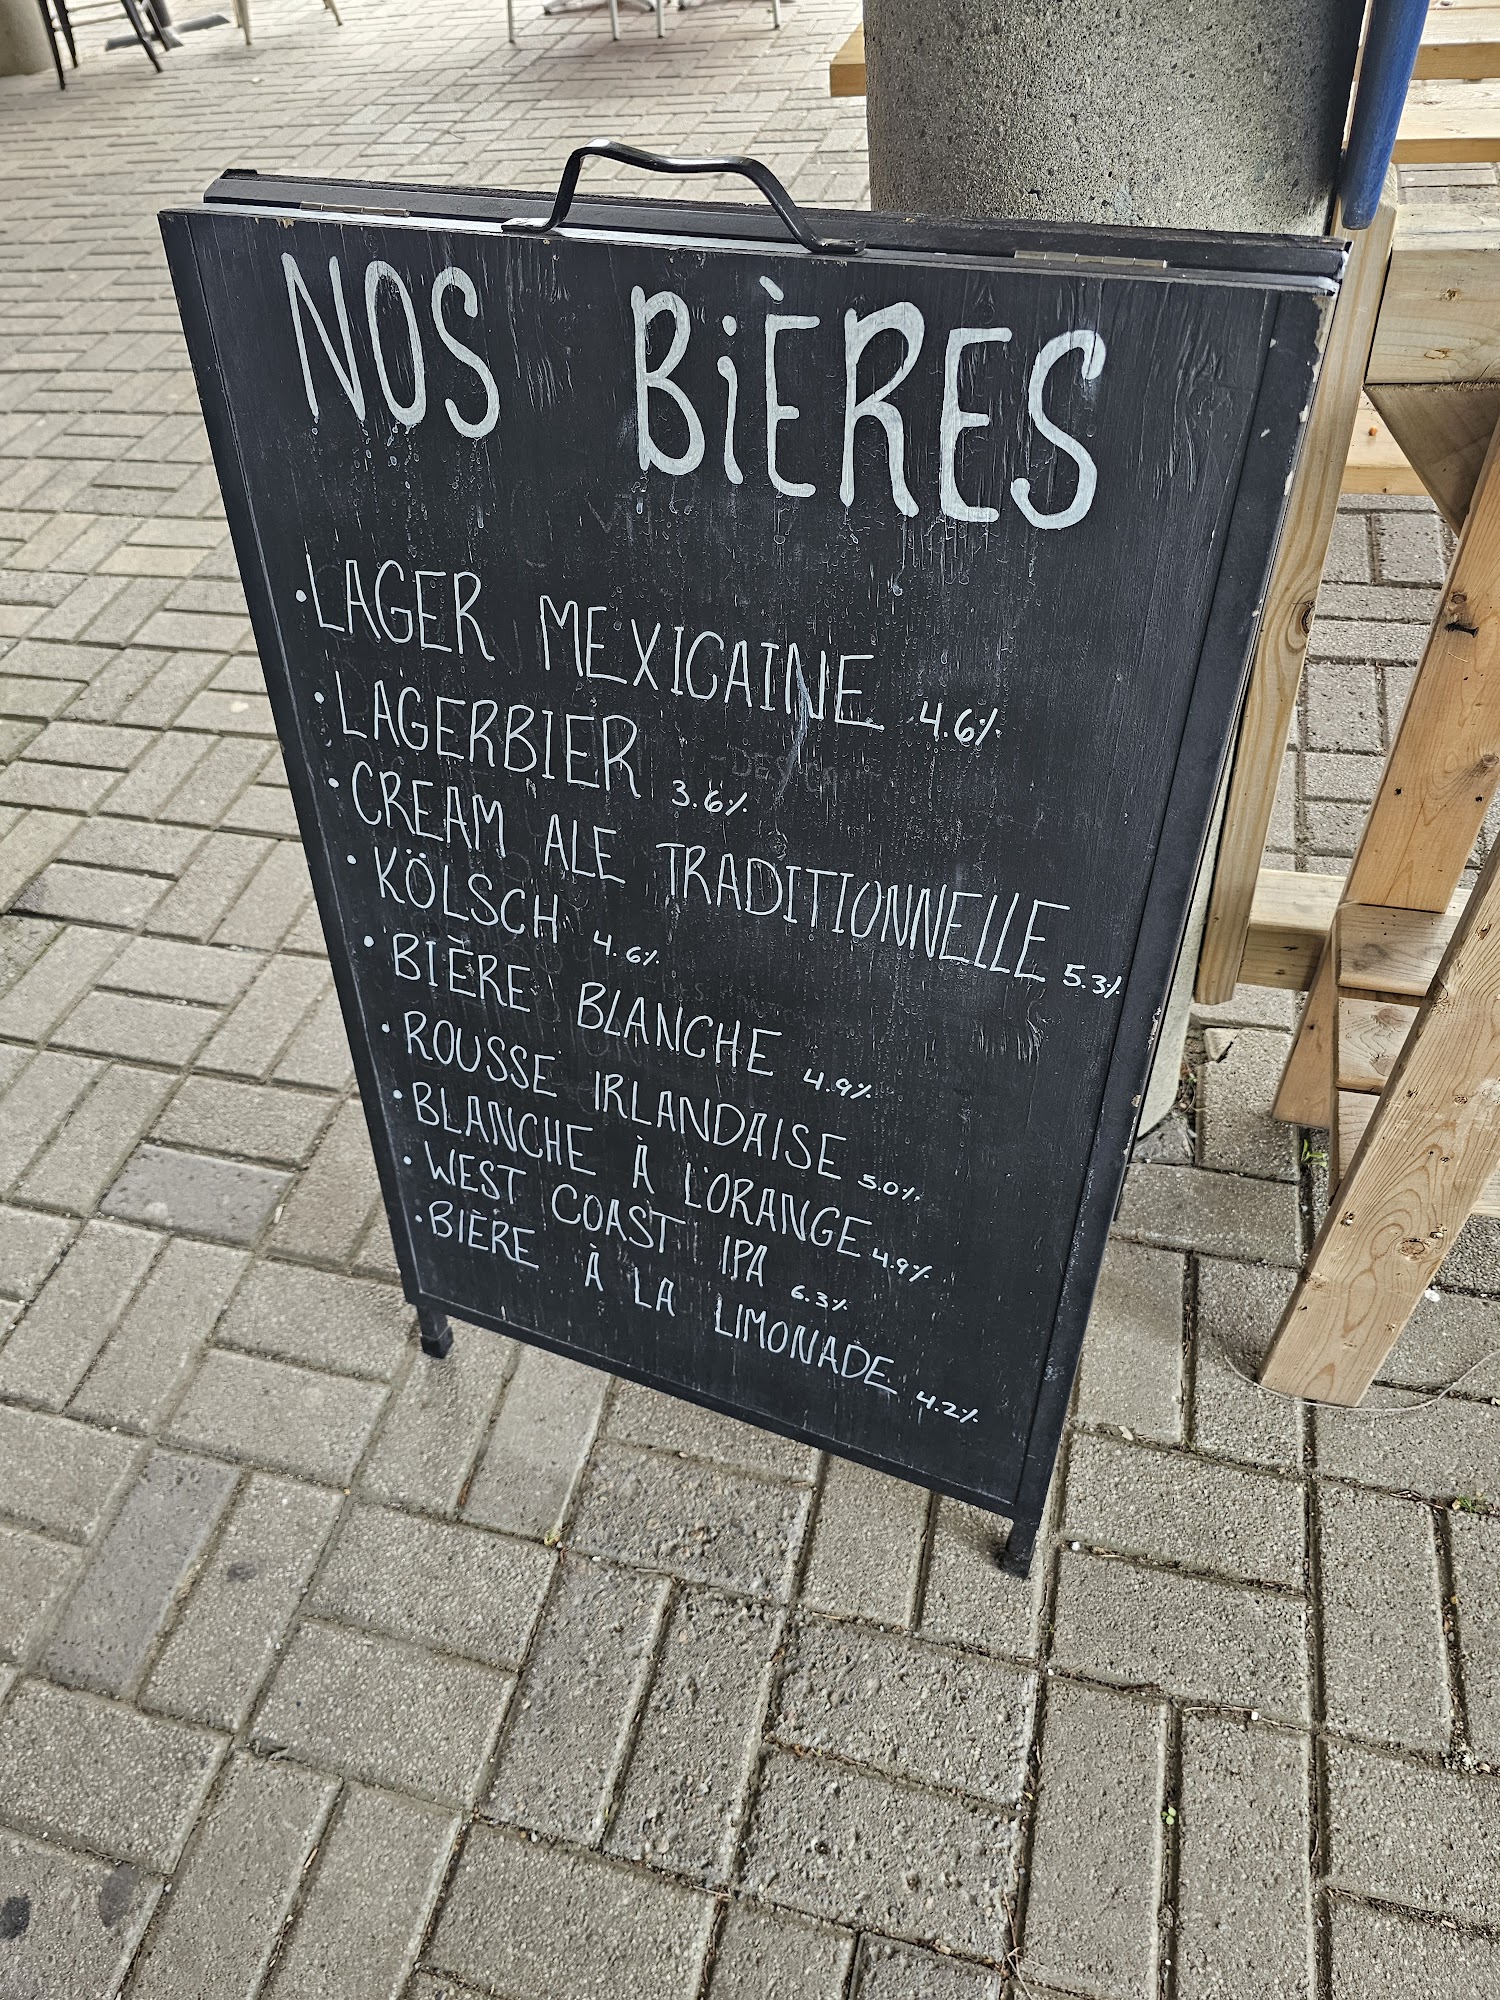 NOS BIÈRES
• LAGER MEXICAINE 4.6%
• LAGERBIER 3.6%
• CREAM ALE TRADITIONNELLE 5.3%
• KÖLSCH 4.6%
• BIÈRE BLANCHE 4.9%
• ROUSSE IRLANDAISE 5.0%
• BLANCHE À L'ORANGE 4.9%
• WEST COAST IPA 6.3%
• BIÈRE À LA LIMONADE 4.2%